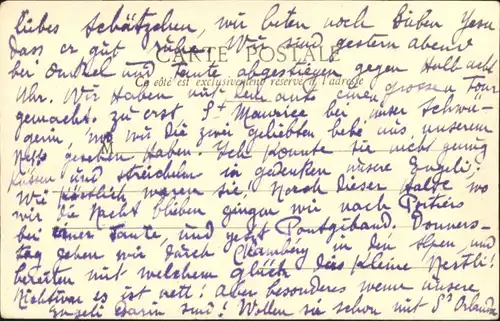 liebes Schätzchen, wir beten noch lieben Jesu
dass er gut ruhe. Wir sind gestern abend
CARTE POSTALE
bei Onkel und Tante abgestiegen gegen Halb acht
Ce côté est exclusivement réservé à l'adresse
Uhr. Wir Haben auf dem auto einen grossen Tour
gemacht. zu erst St Maurice bei unser Schwä-
gerin, wo wir die zwei geliebten bebe aus unserem
M
Nest gesehen Haben. Ich konnte sie nicht genüg
küssen und streicheln in gedenken unsere Engeli;
Wie köstlich waren sie! Nach dieser Halte wo
wir die Nacht blieben gingen wir nach
bei einer Tante, und jetzt Pontgibaud. Donners-
tag gehen wir durch Chambery in den Alpen und
bereiten mit welchem glück das kleine Nestli!
es ist nett! aber besonders wenn unsere
Engeli darin sind! Wollen sie schon mit St